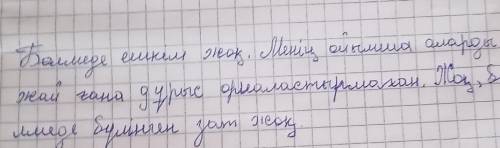 Бөлмеде ешкім жоқ, Менің ойымша оларды
жай ғана дұрыс орналастырмаған. Жоқ, б
лмеде бүлінген зат жоқ.